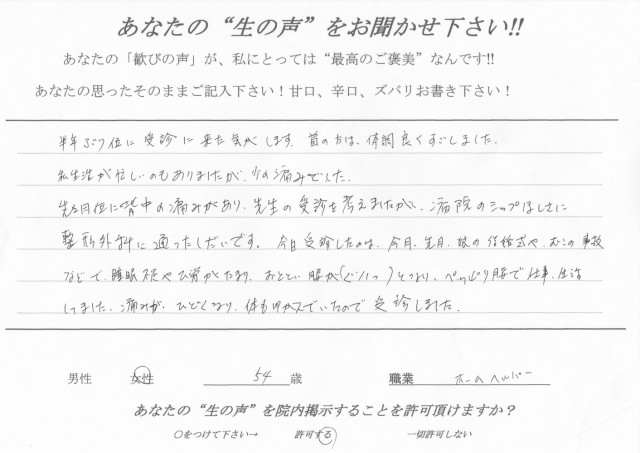 あなたの“生の声”をお聞かせ下さい!!
あなたの「歓びの声」が、私にとっては“最高のご褒美”なんです!!
あなたの思ったそのままご記入下さい！甘口、辛口、ズバリお書き下さい！
半年ぶり位に受診に来た気がします。首の方は、体調良くすごしました。
私生活が忙しいのもありましたが、少の痛みでした。
先月位に背中の痛みがあり、先生の受診を考えましたが、病院のシップほしさに
整形外科に通ったしだいです。今日受診したのは、今月、先月、娘の結婚式や、むこの事故
などで、睡眠不足や疲労がたまり、おととい腰が(ぐパッ)となり、へっぴり腰で仕事、生活
しました。痛みが、ひどくなり、体もゆがんでいたので受診しました。
男性 女性 54 歳 職業 ホームヘルパー
あなたの“生の声”を院内掲示することを許可頂けますか？
○をつけて下さい→ 許可する 一切許可しない